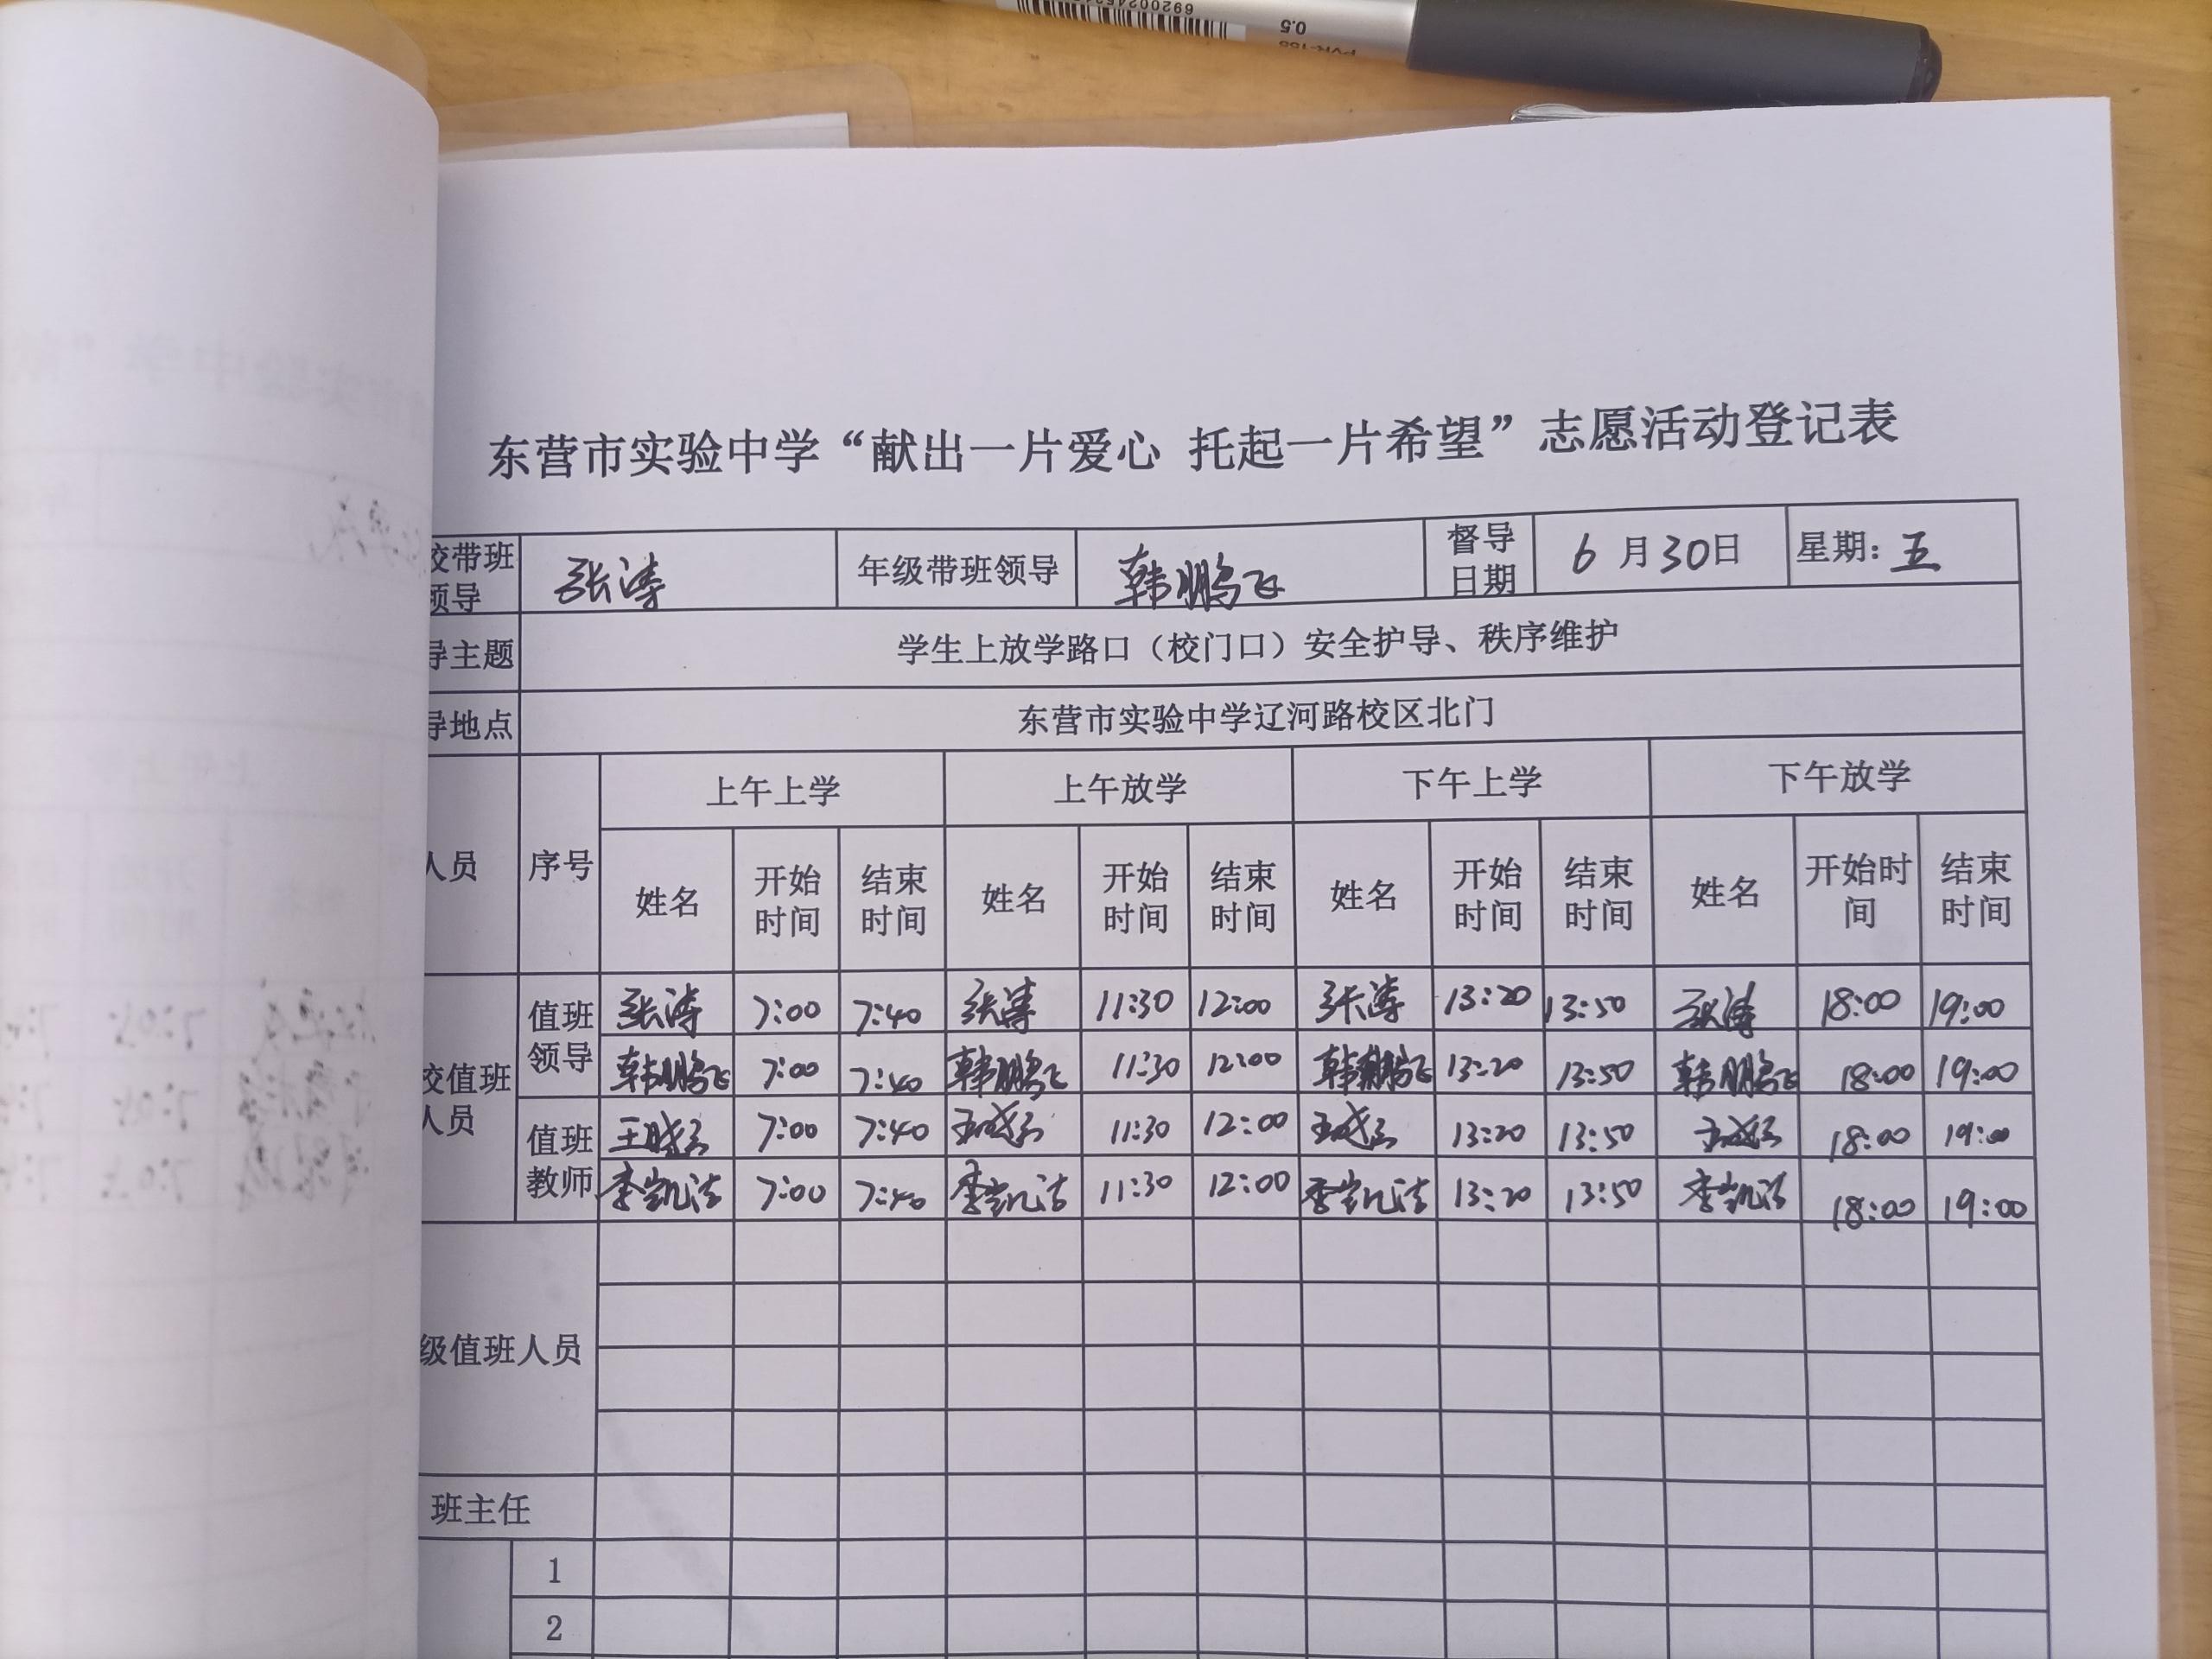 0.5
PVR-155
东营市实验中学“献出一片爱心 托起一片希望”志愿活动登记表
校带班领导 张涛 年级带班领导 韩鹏飞 督导日期 6月30日 星期：五
导主题 学生上放学路口（校门口）安全护导、秩序维护
导地点 东营市实验中学辽河路校区北门
人员 序号 上午上学 上午放学 下午上学 下午放学
姓名 开始时间 结束时间 姓名 开始时间 结束时间 姓名 开始时间 结束时间 姓名 开始时间 结束时间
校值班人员 值班领导 张涛 7:00 7:40 张涛 11:30 12:00 张涛 13:20 13:50 张涛 18:00 19:00
韩鹏飞 7:00 7:40 韩鹏飞 11:30 12:00 韩鹏飞 13:20 13:50 韩鹏飞 18:00 19:00
值班教师 7:00 7:40 11:30 12:00 13:20 13:50 18:00 19:00
李凯洁 7:00 7:40 李凯洁 11:30 12:00 李凯洁 13:20 13:50 李凯洁 18:00 19:00
级值班人员
班主任
1
2